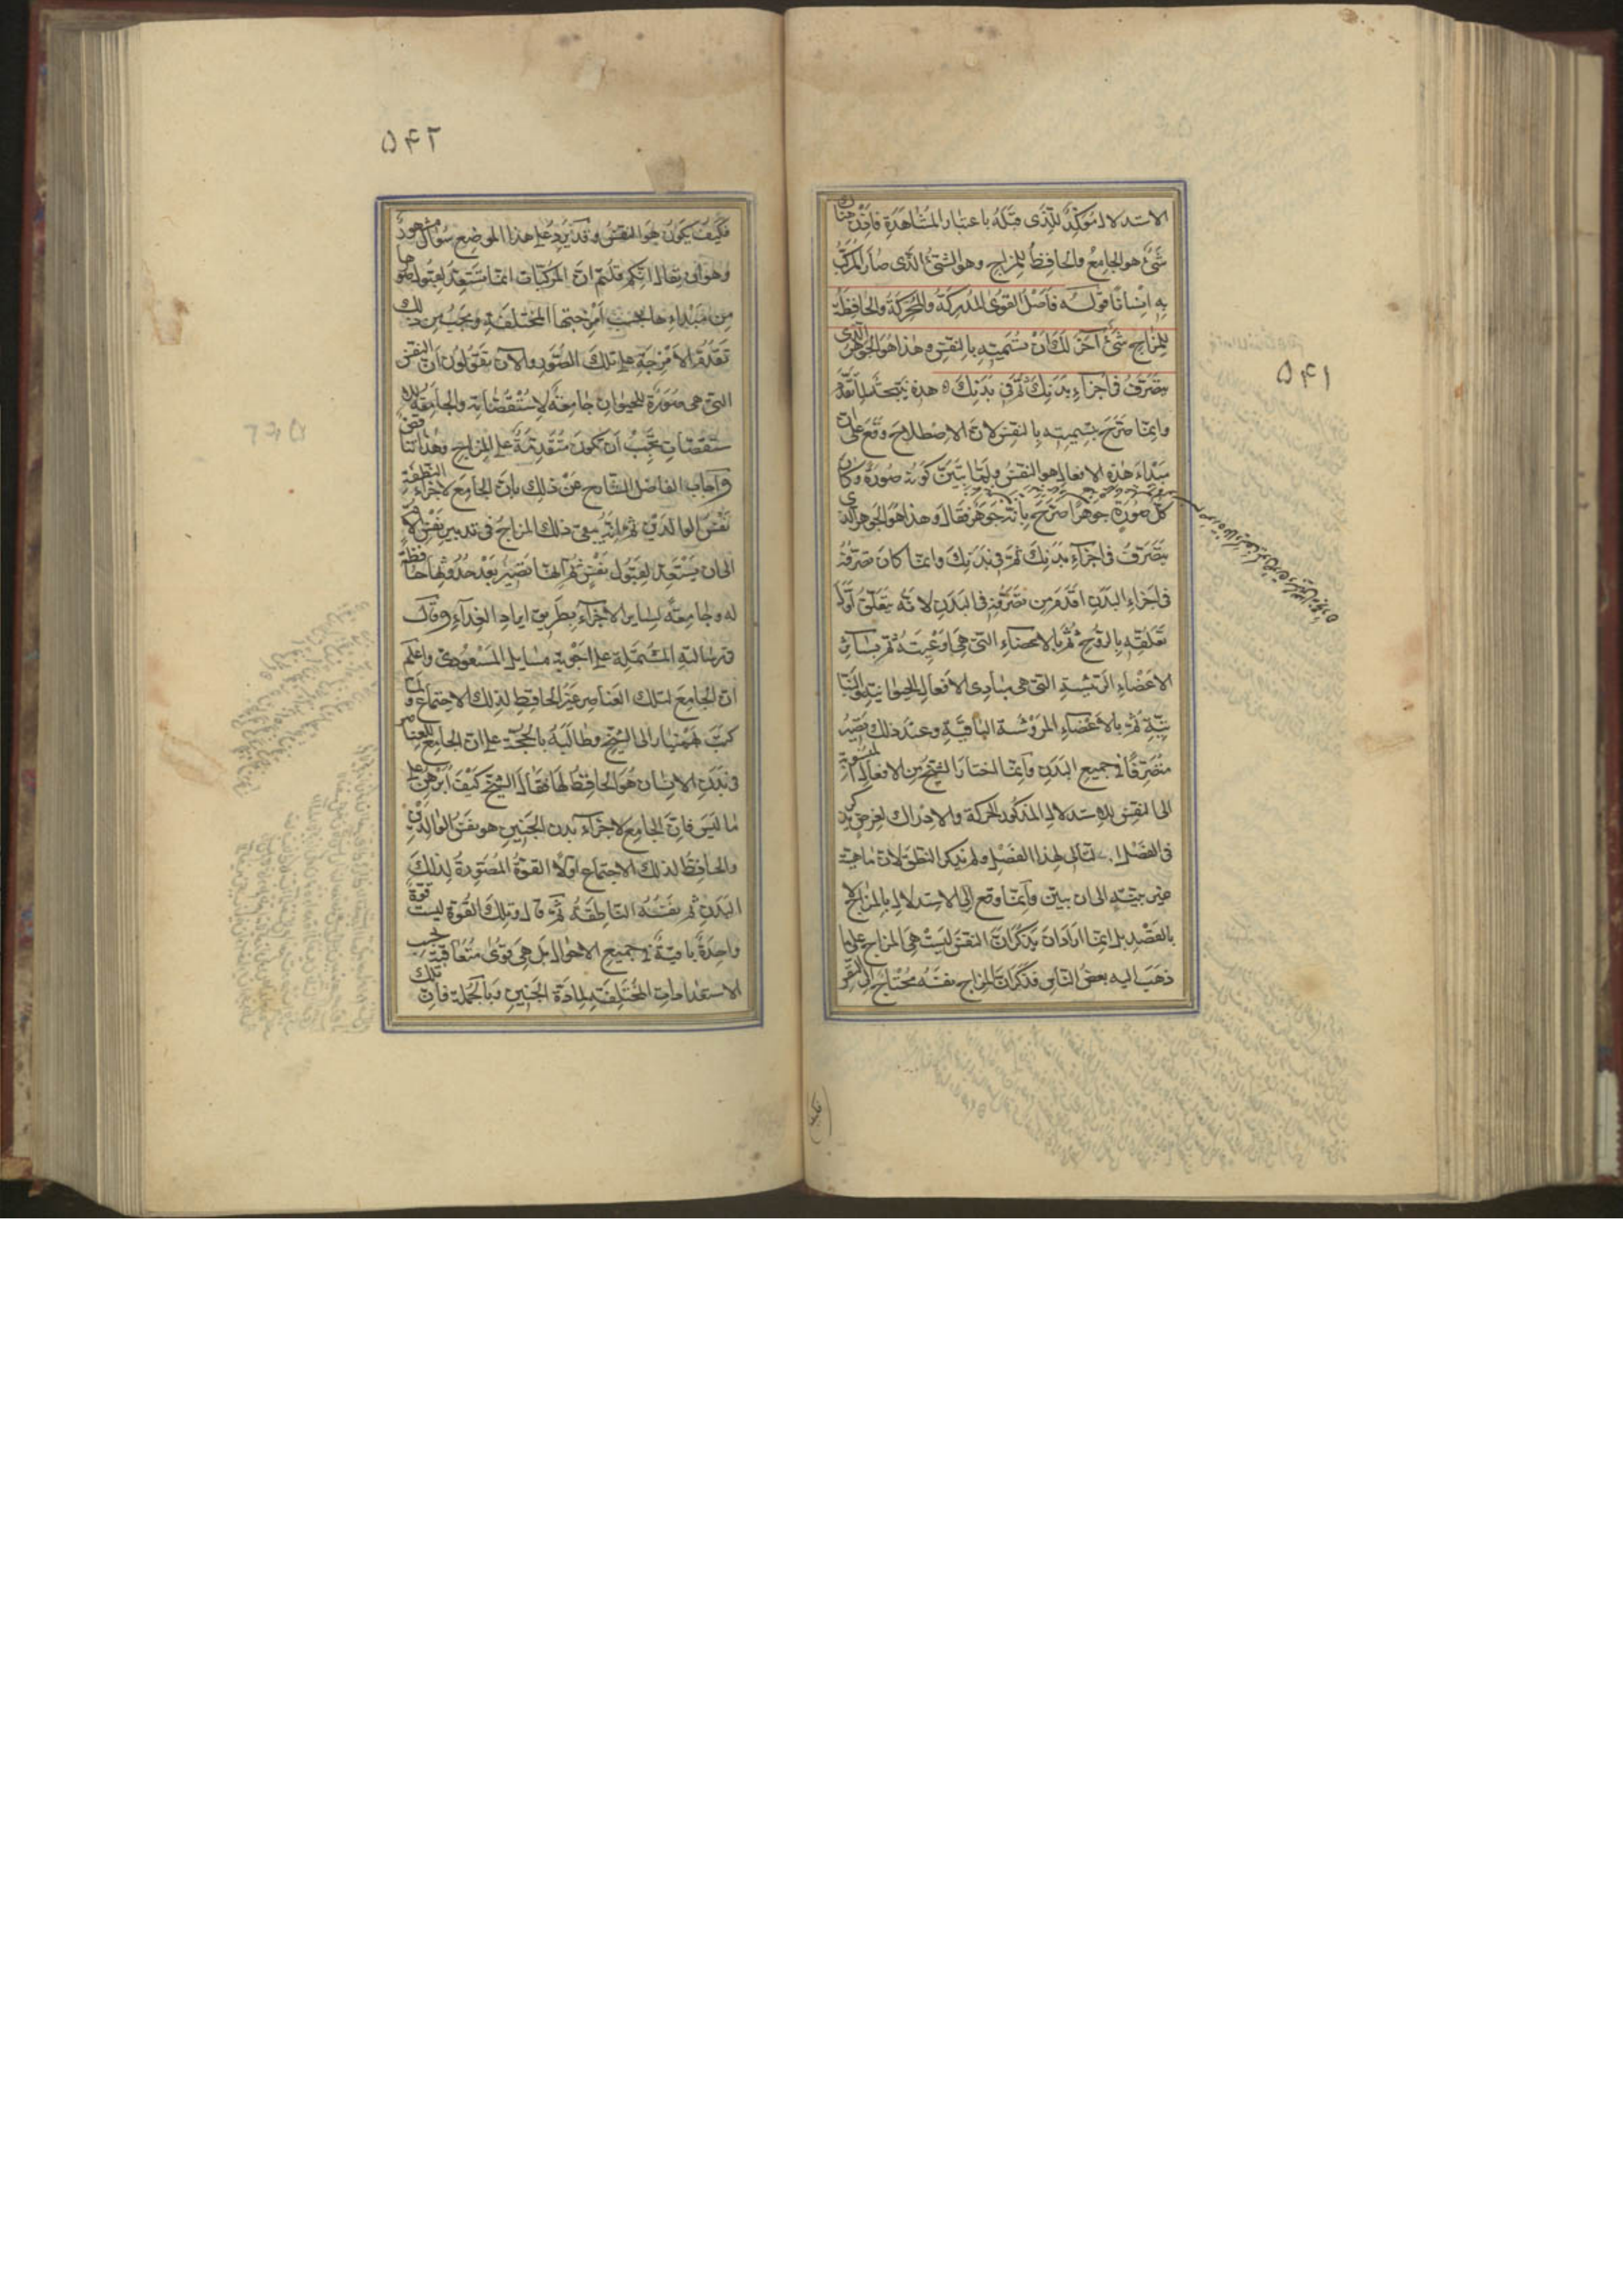 ۵۴۱
الاستدلال مؤكّد للّذى قبله باعتبار المشاهدة فاذن هناك
شئ هو الجامع والحافظ للمزاج وهو الشئ الّذى صار المركّب
به انسانا قوله فاصل القوى المدركة والمحركة والحافظة
للمزاج شئ آخر لك ان تسميته بالنفس وهذا هو الجوهر الّذى
يتصرف فى اجزاء بدنك ثم فى بدنك ه هذه نتيجة لما تقدّم
وانما صرّح بتسميته بالنفس لانّ الاصطلاح وقع على انّ
مبداء هذه الافعال هو النفس ولمّا تبيّن كونه صورة وكان
كل صورة جوهرا صرّح بانّه جوهر فقال وهذا هو الجوهر الذى
يتصرف فى اجزاء بدنك ثم فى بدنك وانما كان تصرفه
فى اجزاء البدن اقدم من تصرّفه فى البدن لانّه يتعلّق اوّل
تعلقه بالروح ثم بالاعضاء التى هى اوعيته ثم بسائر
الاعضاء الرئيسة التى هى مبادى الافعال الحيوانية والنبا
تيّة ثم بالاعضاء المرؤسة الباقية وعند ذلك يصير
متصرّفا فى جميع البدن وانما اختار الشيخ من الافعال المنسوبة
الى النفس للاستدلال المذكور الحركة والادراك لغرض يذكر
فى الفصل التالى لهذا الفصل ولم يذكر النطق لانّ ماهيته
غير بينة الى ان يبين وانما وقع الى الاستدلال بالمزاج لا
بالقصد بل انما اراد ان يذكر ان النفس ليست هى المزاج على ما
ذهب اليه بعض الناس فذكر ان المزاج نفسه محتاج الى النفس
۵۴۲
فكيف يكون هو النفس وقد يرد على هذا الموضع سؤال مشهور
وهو ان يقال انكم قلتم ان المركبات انما تستعد لقبول صورها
من مبداءها بحسب امزجتها المختلفة ويجب من ذلك
تقدم الامزجة على تلك الصور والآن تقولون ان النفس
التى هى صورة للحيوان جامعة لاستقصاته والجامعة للا
ستقصات يجب ان تكون متقدمة على المزاج وهذا تناقض
واجاب الفاضل الشارح عن ذلك بان الجامع لاجزاء النطفة
نفس الوالدين ثم انه يبقى ذلك المزاج فى تدبير نفس الام
الى ان يستعد لقبول نفس ثم انها تصير بعد حدوثها حافظة
له وجامعة لساير الاجزاء بطريق ايراد الغذاء وقال
فى رسالته المشتملة على اجوبة مسايل المسعودى واعلم
ان الجامع لتلك العناصر غير الحافظ لذلك الاجتماع ولما
كتب بهمنيار الى الشيخ وطالبه بالحجة على ان الجامع للعناصر
فى بدن الانسان هو الحافظ لها فقال الشيخ كيف ابرهن على
ما ليس فان الجامع لاجزاء بدن الجنين هو نفس الوالدين
والحافظ لذلك الاجتماع اولا القوة المصورة لذلك
البدن ثم نفسه الناطقة ثم قال وتلك القوة ليست قوة
واحدة باقية فى جميع الاحوال بل هى قوى متعاقبة بحسب
الاستعدادات المختلفة لمادة الجنين وبالجملة فان تلك